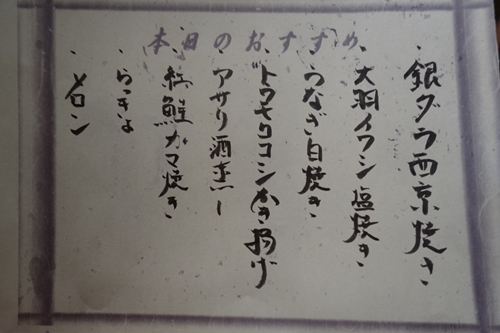 本日のおすすめ
・銀ダラ西京焼き
・大羽イワシ塩焼き
・うなぎ白焼き
・トウモロコシかき揚げ
・アサリ酒蒸し
・紅鮭カマ焼き
・らっきょ
・メロン